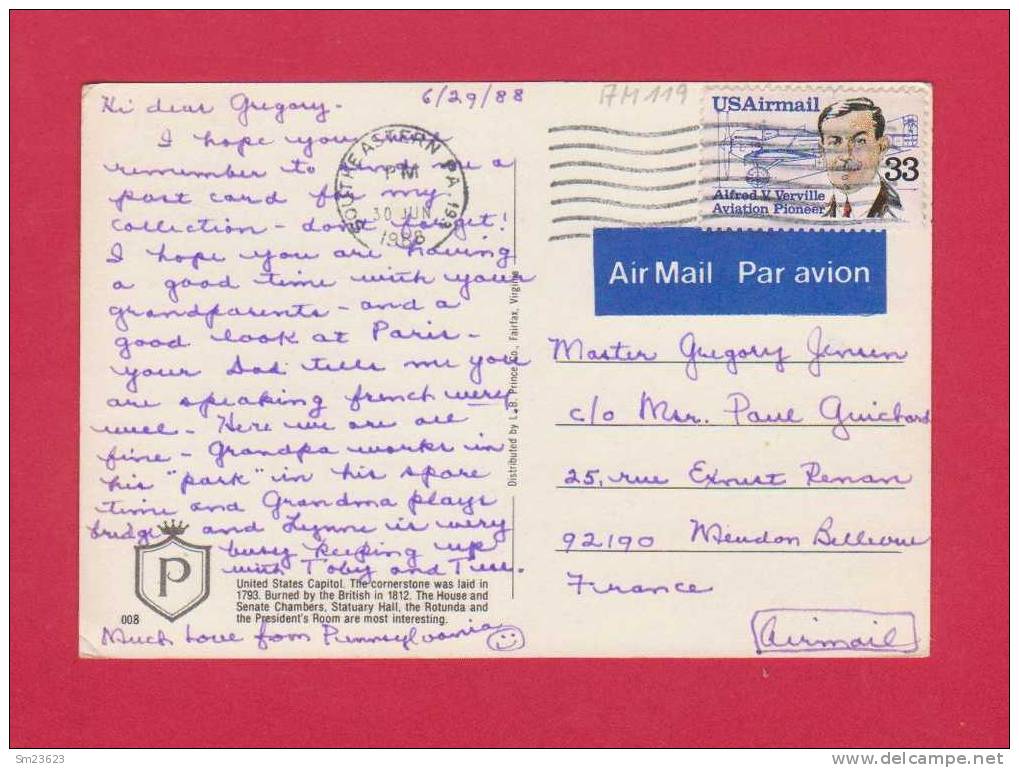 Hi dear Gregory -
6/29/88
I hope you will
remember to me a
post card for my
collection - don't forget!
I hope you are having
a good time with your
grandparents - and a
good look at Paris -
your Dad tells me you
are speaking french very
well - Here we are all
fine - Grandpa works in
his "park" in his spare
time and Grandma plays
bridge and Lynne is very
busy keeping up
with Toby and
Much Love from Pennsylvania
P
008
United States Capitol. The cornerstone was laid in
1793. Burned by the British in 1812. The House and
Senate Chambers, Statuary Hall, the Rotunda and
the President's Room are most interesting.
Distributed by L. B. Prince Co., Fairfax, Virginia
SOUTHEASTERN PA
PM
30 JUN
1988
AM 119
USAirmail
33
Alfred V. Verville
Aviation Pioneer
Air Mail Par avion
Master Gregory Jensen
c/o Mr. Paul Guichard
25, rue Ernest Renan
92190 Meudon Bellevue
France
Airmail
Sm23623
www.delcampe.net